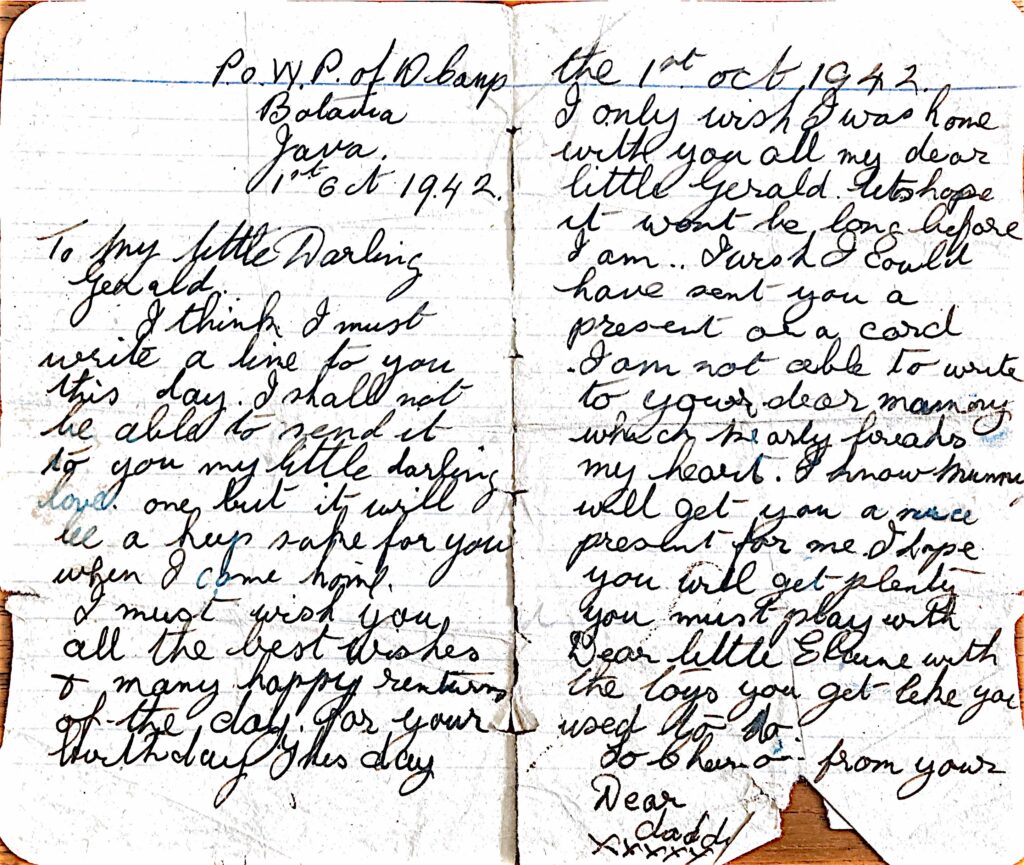 P.o.W. P. of D Camp
Batavia
Java.
1st Oct 1942.
To My little Darling
Gerald.
I think I must
write a line to you
this day. I shall not
be able to send it
to you my little darling
love. one but it will
be a keep safe for you
when I come home.
I must wish you
all the best wishes
& many happy renturns
of the day. for your
birthday This day
the 1st. oct 1942.
I only wish I was home
with you all my dear
little Gerald. lets hope
it wont be long before
I am.. I wish I Could
have sent you a
present or a card
. I am not able to write
to your dear mammy
which nearly breaks
my heart. I know mummy
will get you a nice
present for me. I hope
you will get plenty
you must play with
Dear little Elaine with
the toys you get like you
used to do.
So Cheerio from your
Dear
daddy
xxxxxx